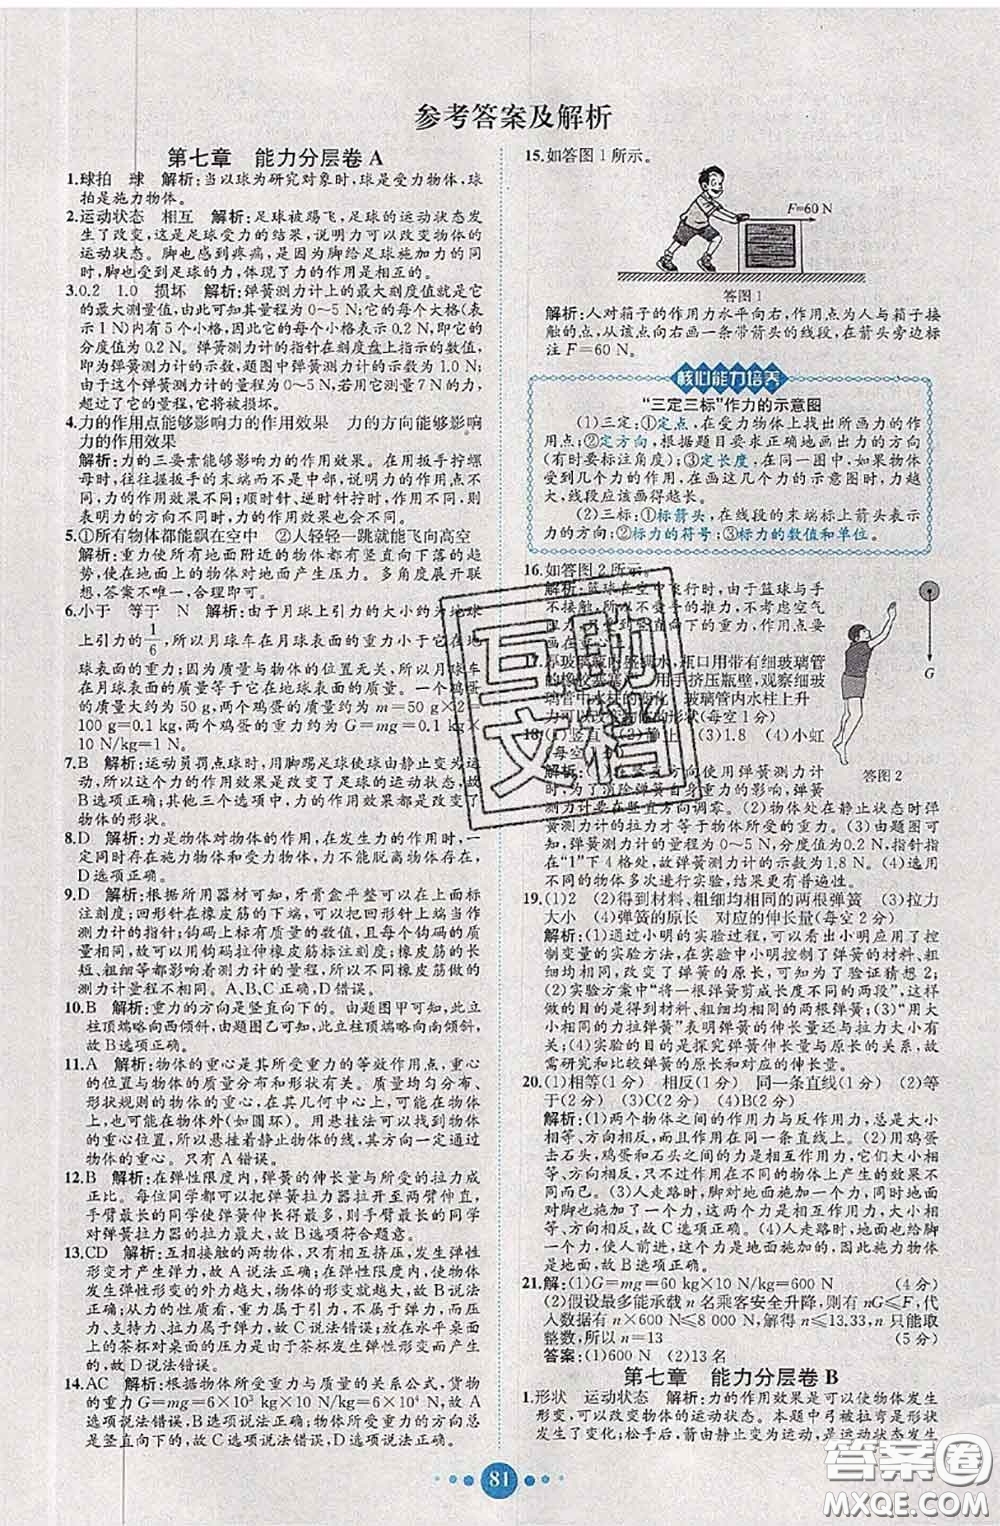 参考答案及解析
第七章 能力分层卷A
1.球拍 球 解析:当以球为研究对象时,球是受力物体,球
拍是施力物体。
2.运动状态 相互 解析:足球被踢飞,足球的运动状态发
生了改变,这是足球受力的结果,说明力可以改变物体的
运动状态。脚也感到疼痛,是因为脚给足球施加力的同
时,脚也受到足球的力,体现了力的作用是相互的。
3.0.2 1.0 损坏 解析:弹簧测力计上的最大刻度值就是它
的最大测量值,由此可知其量程为0~5 N;它的每个大格(表
示1 N)内有5个小格,因此它的每个小格表示0.2 N,即它的
分度值为0.2 N。弹簧测力计的指针在刻度盘上指示的数值,
即为弹簧测力计的示数,题图中弹簧测力计的示数为1.0 N。
由于这个弹簧测力计的量程为0~5 N,若用它测量7 N
的力,超过了它的量程,会造成弹簧测力计损坏。
4.力的作用点能够影响力的作用效果 力的方向能够影响
力的作用效果
解析:力的三要素能够影响力的作用效果。在用扳手拧螺
母时,往往握扳手的末端而不是中部,说明力的作用点不
同,力的作用效果不同;顺时针、逆时针拧扳手不同,则
表明力的方向不同时,力的作用效果也不同。
5.①所有物体都能飘在空中 ②人轻轻一跳就能飞向高空
解析:重力使所有地面附近的物体都有竖直向下的运动
趋势,同时物体对地面产生压力。多角度展开联
想,答案不唯一,合理即可。
6.小于 等于 N 解析:由于月球上引力的大小约为地球
上引力的1/6,所以月球车在月球表面的重力小于它在地
球表面的重力;因为质量与物体的位置无关,所以月球车
在月球表面的质量等于它在地球表面的质量。一个鸡蛋
的质量大约为50 g,两个鸡蛋的质量约为m=50 g×2=
100 g=0.1 kg,两个鸡蛋的重力约为G=mg=0.1 kg×
10 N/kg=1 N。
7.B 解析:运动员罚点球时,用脚踢足球使球由静止变为运
动,所以这个力的作用效果是改变了足球的运动状态,故
B选项正确;其余三个选项中,力的作用效果是改变了物
体的形状。
8.D 解析:力是物体对物体的作用,在发生力的作用时,一
定同时存在施力物体和受力物体,力不能脱离物体存在,
D选项正确。
9.D 解析:根据所用器材可知,牙膏盒平整可以在上面标
注刻度;回形针在橡皮筋的下端,可以把回形针上端当做
测力计的指针;钩码上标有质量的数值,且每个钩码的质
量相等,故可以用钩码拉伸橡皮筋标注刻度;橡皮筋的长
短、粗细等影响着测力计的量程,所以不同橡皮筋做的测
力计量程不相同。A、B、C正确,D错误。
10.B 解析:重力的方向是竖直向下的。由题图甲可知,此立
柱顶端略向西倾斜,由题图乙可知,此立柱顶端略向南倾斜,
故B选项正确。
11.A 解析:物体的重心是其所受重力的等效作用点,重心的
位置与物体的质量分布和形状有关。质量均匀分布、
形状规则的物体的重心,在其几何中心上,可能在物体
上,也可能在物体外(如圆环)。用悬挂法可以找到物体
的重心位置,所以悬挂着静止物体的线,其方向一定通过
物体的重心。只有A错误。
12.B 解析:在弹性限度内,弹簧的伸长量与所受的拉力成
正比。每位同学都可以把弹簧拉力器拉开至两臂伸直,
手臂最长的同学使弹簧伸长得最多,所以手臂最长的同学
对弹簧拉力器的拉力最大,故B选项符合题意。
13.CD 解析:互相接触的两物体,只有相互挤压,发生弹性
形变才产生弹力,故A说法正确;在弹性限度内,使物体
发生弹性形变的外力越大,物体的弹性形变就越大,故B
说法正确;从力的性质看,重力属于引力,不属于弹力,而
压力、支持力、拉力属于弹力,故C说法错误;放在水平桌面
上的茶杯对桌面的压力是由于茶杯发生弹性形变而产生
的,故D说法错误。
14.AC 解析:根据物体所受重力与质量的关系公式,货物
的重力为G=mg=6×10³ kg×10 N/kg=6×10⁴ N,故A
选项说法正确,B选项说法错误;物体所受重力的方向总
是竖直向下的,故C选项说法正确,D选项说法错误。
15.如答图1所示。
F=60 N
答图1
解析:人对箱子的作用力水平向右,作用点为人与箱子接
触的点,从该点向右画一条带箭头的线段,在箭头旁边标
注F=60 N。
核心能力培养
“三定三标”作力的示意图
(1)三定:①定点,在受力物体上找出所画力的作
用点;②定方向,根据题目要求正确地画出力的方向
(有时要标注角度);③定长度,在同一图中,如果物体
受到几个力的作用,在画这几个力的示意图时,力越
大,线段应该画得越长。
(2)三标:①标箭头,在线段的末端标上箭头表示
力的方向;②标力的符号;③标力的数值和单位。
16.如答图2所示。
解析:篮球在空中飞行时,由于篮球与手
不接触,所以不受手的推力,不考虑空气
阻力,只受竖直向下的重力,重力的作用点
画在重心。
G
答图2
17.厚玻璃瓶内盛满水,瓶口用带有细玻璃管
的橡胶塞塞 用手挤压瓶壁,观察细玻
璃管中水柱的变化 玻璃管内水柱上升
力可以改变物体的形状(每空1分)
18.(1)竖直 静止 (3)1.8 (4)小虹
(每空
解析: 方向使用弹簧测力计
时,为了消除弹簧自身重力的影响,弹簧测
要在竖直方向调零。(2)物体处在静止状态时弹
簧测力计的拉力才等于物体所受的重力。(3)由题图可
知,弹簧测力计的量程是0~5 N,分度值为0.2 N,指针指
在“1”下4格处,故弹簧测力计的示数为1.8 N。(4)选用
不同的物体多次进行实验,结果更有普遍性。
19.(1)2 (2)得到材料、粗细均相同的两根弹簧 (3)拉力
大小 (4)弹簧的原长 对应的伸长量(每空2分)
解析:(1)通过小明的实验过程,可以看出小明应用了控
制变量的方法,在实验中小明控制了弹簧的材料、粗
细均相同,改变了弹簧的原长,可知为了验证猜想2;
(2)实验方案中“将一根弹簧剪成长度不等的两段,这样做
的目的是得到材料、粗细均相同的两根弹簧;(3)“用大
小相同的力拉弹簧”表明弹簧的伸长量还与拉力大小
有关;(4)本实验的目的是探究弹簧伸长量与原长的关系,故
需研究和比较弹簧的原长和对应的伸长量。
20.(1)相等(1分) 相反(1分) 同一条直线(1分) (2)等
于(2分) (3)C(2分) (4)B(2分)
解析:(1)两个物体之间的作用力与反作用力,总是大小
相等、方向相反,而且作用在同一条直线上。(2)用鸡蛋
去击石头,鸡蛋和石头之间的力大小相等、方向相反,作用
在同一直线上,只不过作用在不同的物体上产生的效果
不同而已。(3)人走路时,脚与地面之间的作用力属于一
对相互作用的力,这两个力是相互作用力,这两个力大小
相等、方向相反,故C选项正确。(4)人走路时,地面也给人
一个作用力,使人前进,因此这个力的施力物体
是地面,故B选项正确。
21.解:(1)G=mg=60 kg×10 N/kg=600 N (4分)
(2)假设最多能承载n名乘客安全升降,则有nG≤F,代
入数据有n×600 N≤8 000 N,解得n≤13.33,n只能取
整数,所以n=13 (5分)
答案:(1)600 N (2)13名
第七章 能力分层卷B
1.形状 运动状态 解析:力的作用效果是可以使物体发生
形变,可以改变物体的运动状态。本题中弓被拉弯是形状
发生了变化;松手后,箭由静止变为运动,是运动状态发生
81
答案圈
MXQE.COM